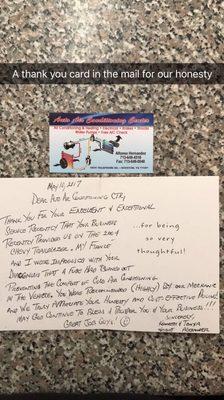 A thank you card in the mail for our honesty
Auto Air Conditioning Center
Air Conditioning & Heating • Electrical • Brakes • Shocks
Water Pumps • Free A/C Check
Alfonso Hernandez
May 10, 2017
Dear Auto Air Conditioning Ctr,
Thank You For Your Excellent & Exceptional
Service Recently That Your Business
Recently Provided us on the 2004
Chevy Trailblazer. My Fiancé
And I were Impressed with Your
Diagnosis That A Fuse Had Blown out
Preventing The Comfort of Cold Air Conditioning
In The Vehicle. You Were Recommended (Highly) By our Mechanic
And We Truly Appreciate Your Honesty and Cost-Effective Policies!
May God Continue To Bless & Prosper You & Your Business!!!
Great Job Guys!
...for being
so very
thoughtful!
Sincerely,
Kenneth & Tonya
Alexander